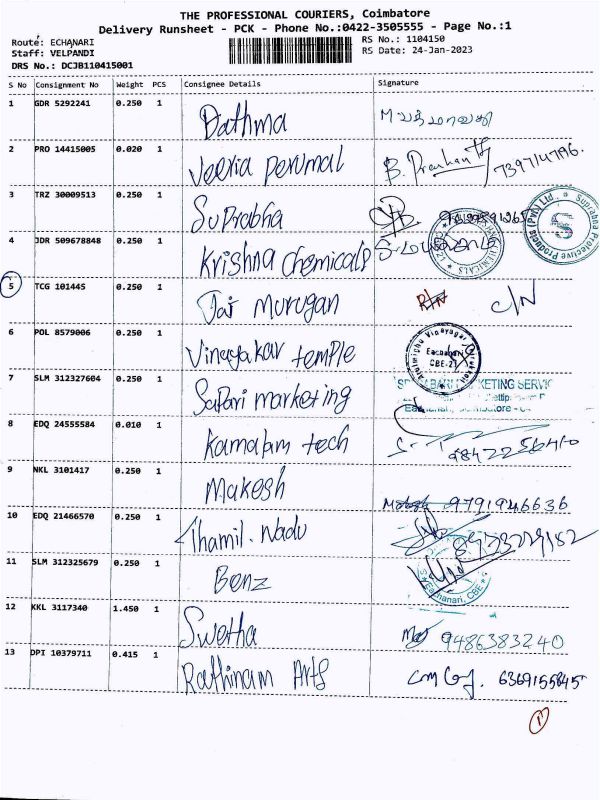 THE PROFESSIONAL COURIERS, Coimbatore
Delivery Runsheet - PCK - Phone No.:0422-3505555 - Page No.:1
Route: ECHANARI
RS No.: 1104150
Staff: VELPANDI
RS Date: 24-Jan-2023
DRS No.: DCJB110415001
S No Consignment No Weight PCS Consignee Details Signature
1 GDR 5292241 0.250 1 Dathma
2 PRO 14415005 0.020 1 Veeria perumal B. Prashanth 7397147796.
3 TRZ 30009513 0.250 1 Suprabha
4 JDR 509678848 0.250 1 Krishna chemicals
Suprabha Protective Products (Pvt) Ltd.,
S
5 TCG 101445 0.250 1 Jai murugan R/N C/N
6 POL 8579006 0.250 1 Vinayakar temple
Eachanari
CBE-21
7 SLM 312327604 0.250 1 Safari marketing
Eachanari, Coimbatore -
8 EDQ 24555584 0.010 1 Kamalam tech
9842256410
9 NKL 3101417 0.250 1 Makesh 9791946636
10 EDQ 21466570 0.250 1 Thamil. Nadu
11 SLM 312325679 0.250 1 Benz
Eachanari, CBE
12 KKL 3117340 1.450 1 Swetha 9486383240
13 DPI 10379711 0.415 1 Rathinam Arts 6369155845